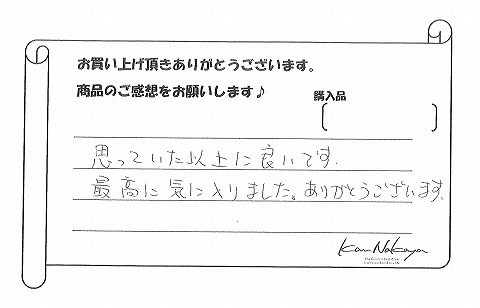 お買い上げ頂きありがとうございます。
商品のご感想をお願いします♪
購入品
思っていた以上に良いです.
最高に気に入りました。ありがとうございます.
Kan Nakaya